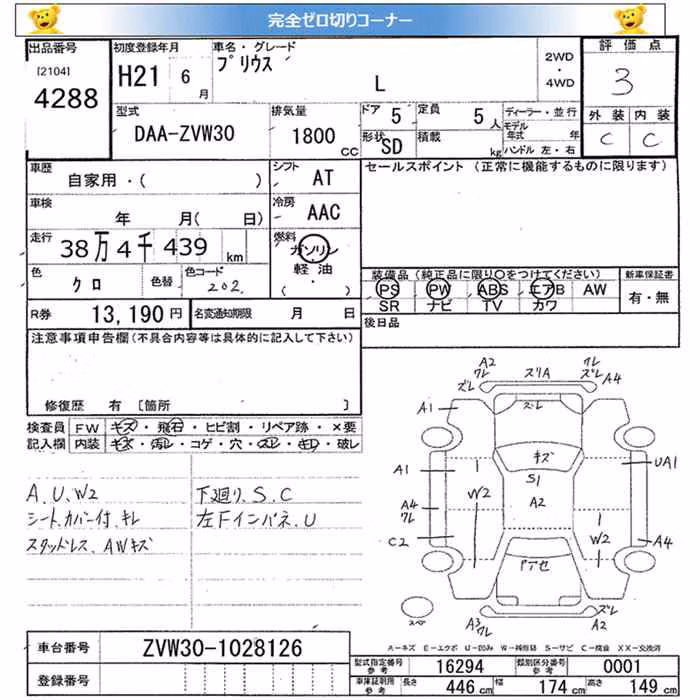 完全ゼロ切りコーナー
出品番号 初度登録年月 車名・グレード 2WD・4WD 評価点
[2104] H21 6月 プリウス L 3
4288
型式 排気量 ドア 5 定員 5人 ディーラー・並行 外装 内装
DAA-ZVW30 1800cc 形状 SD 積載 kg モデル年式 年 C C
ハンドル 左・右
車歴 シフト セールスポイント (正常に機能するものに限ります)
自家用・( ) AT
車検 冷房
年 月( 日) AAC
走行 燃料
38万4千439km ガソリン
軽油
・
( )
色 クロ 色替 色コード 202
装備品(純正品に限り○をつけてください) 新車保証書
PS PW ABS エアB AW 有・無
SR ナビ TV カワ
R券 13,190円 名変通知期限 月 日 後日品
注意事項申告欄(不具合内容等は具体的に記入して下さい)
修復歴 有 [箇所 ]
検査員 FW キズ・飛石・ヒビ割・リペア跡・×要
記入欄 内装 キズ・汚レ・コゲ・穴・スレ・キレ・破レ
A.U.W2 下廻り.S.C
シート.カバー付.キレ 左Fインパネ.U
スタッドレス.AWキズ
A2 クレ ズレ スリA クレ ズレ A4
A1 ズレ
キズ
A1 S1 UA1
W2 A2
A4 クレ
C2 W2 A4
スペア A3 クレ ズレ A2
A-キズ E-エクボ U-凹み W-補修跡 S-サビ C-腐食 XX-交換済
車台番号 ZVW30-1028126
登録番号
型式指定番号 参考 16294 類別区分番号 参考 0001
車庫証明用 参考 長さ 446cm 幅 174cm 高さ 149cm